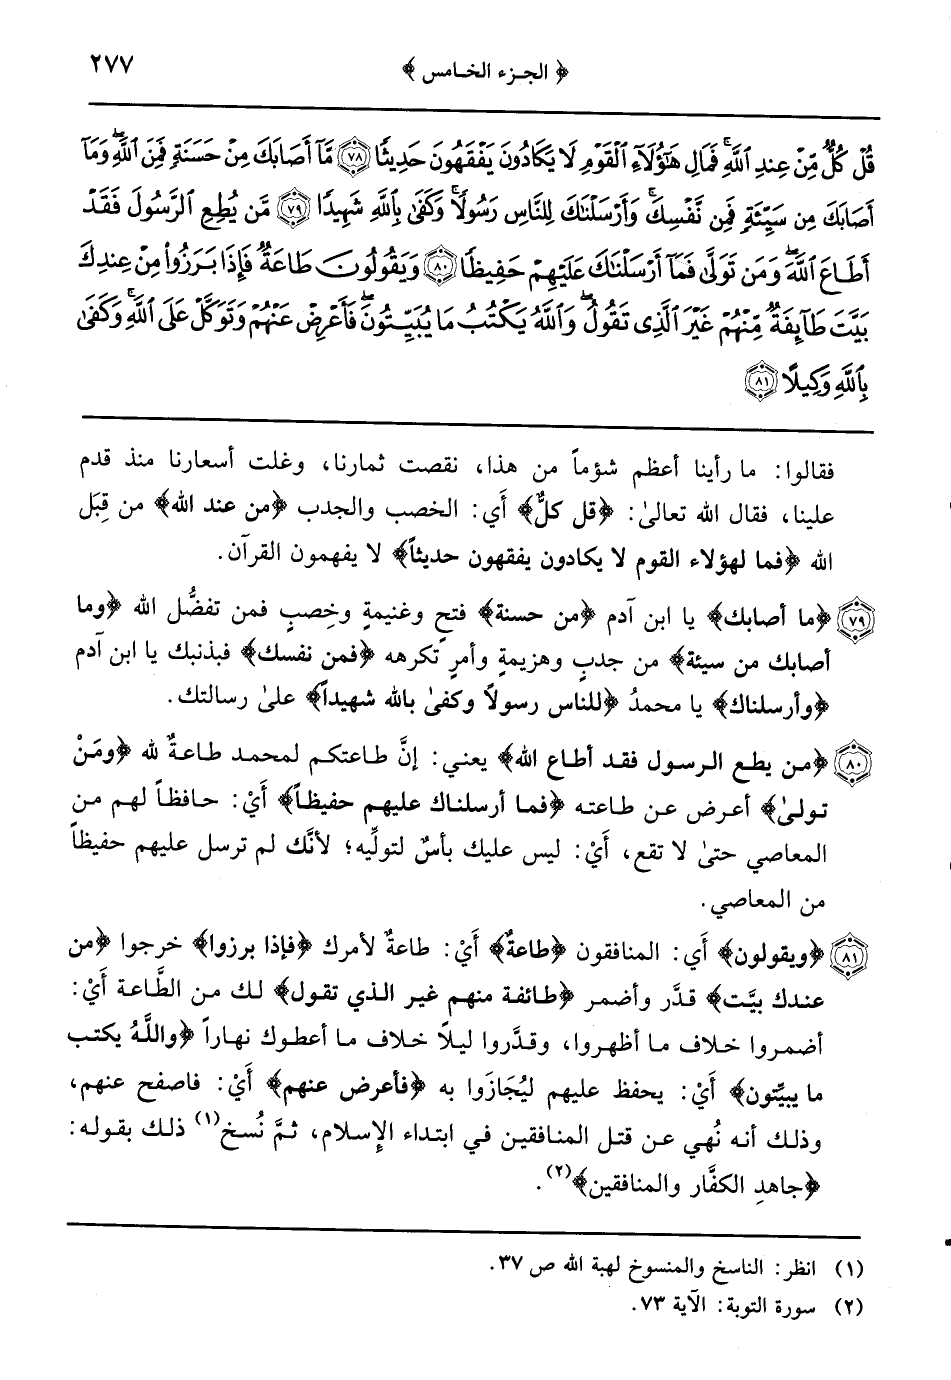 ﴿ الجزء الخامس ﴾ ٢٧٧
قُلْ كُلٌّ مِّنْ عِندِ ٱللَّهِ ۖ فَمَالِ هَٰٓؤُلَآءِ ٱلْقَوْمِ لَا يَكَادُونَ يَفْقَهُونَ حَدِيثًا ۝٧٨ مَّآ أَصَابَكَ مِنْ حَسَنَةٍ فَمِنَ ٱللَّهِ ۖ وَمَآ
أَصَابَكَ مِن سَيِّئَةٍ فَمِن نَّفْسِكَ ۚ وَأَرْسَلْنَٰكَ لِلنَّاسِ رَسُولًا ۚ وَكَفَىٰ بِٱللَّهِ شَهِيدًا ۝٧٩ مَّن يُطِعِ ٱلرَّسُولَ فَقَدْ
أَطَاعَ ٱللَّهَ ۖ وَمَن تَوَلَّىٰ فَمَآ أَرْسَلْنَٰكَ عَلَيْهِمْ حَفِيظًا ۝٨٠ وَيَقُولُونَ طَاعَةٌ فَإِذَا بَرَزُوا۟ مِنْ عِندِكَ
بَيَّتَ طَآئِفَةٌ مِّنْهُمْ غَيْرَ ٱلَّذِى تَقُولُ ۖ وَٱللَّهُ يَكْتُبُ مَا يُبَيِّتُونَ ۖ فَأَعْرِضْ عَنْهُمْ وَتَوَكَّلْ عَلَى ٱللَّهِ ۚ وَكَفَىٰ
بِٱللَّهِ وَكِيلًا ۝٨١
فقالوا: ما رأينا أعظم شؤماً من هذا، نقصت ثمارنا، وغلت أسعارنا منذ قدم
علينا، فقال الله تعالىٰ: ﴿قل كلٌّ﴾ أَي: الخصب والجدب ﴿من عند الله﴾ من قِبَل
الله ﴿فما لهؤلاء القوم لا يكادون يفقهون حديثاً﴾ لا يفهمون القرآن.
٧٩ ﴿ما أصابك﴾ يا ابن آدم ﴿من حسنة﴾ فتحٍ وغنيمةٍ وخِصبٍ فمن تفضُّل الله ﴿وما
أصابك من سيئة﴾ من جدبٍ وهزيمةٍ وأمرٍ تكرهه ﴿فمن نفسك﴾ فبذنبك يا ابن آدم
﴿وأرسلناك﴾ يا محمدُ ﴿للناس رسولاً وكفىٰ بالله شهيداً﴾ علىٰ رسالتك.
٨٠ ﴿من يطع الرسول فقد أطاع الله﴾ يعني: إنَّ طاعتكم لمحمد طاعةٌ لله ﴿ومَنْ
تولىٰ﴾ أعرض عن طاعته ﴿فما أرسلناك عليهم حفيظاً﴾ أَيْ: حافظاً لهم من
المعاصي حتىٰ لا تقع، أَيْ: ليس عليك بأسٌ لتولِّيه؛ لأنَّك لم ترسل عليهم حفيظاً
من المعاصي.
٨١ ﴿ويقولون﴾ أَي: المنافقون ﴿طاعةٌ﴾ أَيْ: طاعةٌ لأمرك ﴿فإذا برزوا﴾ خرجوا ﴿من
عندك بيَّت﴾ قدَّر وأضمر ﴿طائفة منهم غير الذي تقول﴾ لك من الطَّاعة أَيْ:
أضمروا خلاف ما أظهروا، وقدَّروا ليلاً خلاف ما أعطوك نهاراً ﴿واللَّهُ يكتب
ما يبيِّتون﴾ أَيْ: يحفظ عليهم ليُجَازَوا به ﴿فأعرض عنهم﴾ أَيْ: فاصفح عنهم،
وذلك أنه نُهي عن قتل المنافقين في ابتداء الإِسلام، ثمَّ نُسخ(١) ذلك بقوله:
﴿جاهدِ الكفَّار والمنافقين﴾(٢).
(١) انظر: الناسخ والمنسوخ لهبة الله ص ٣٧.
(٢) سورة التوبة: الآية ٧٣.